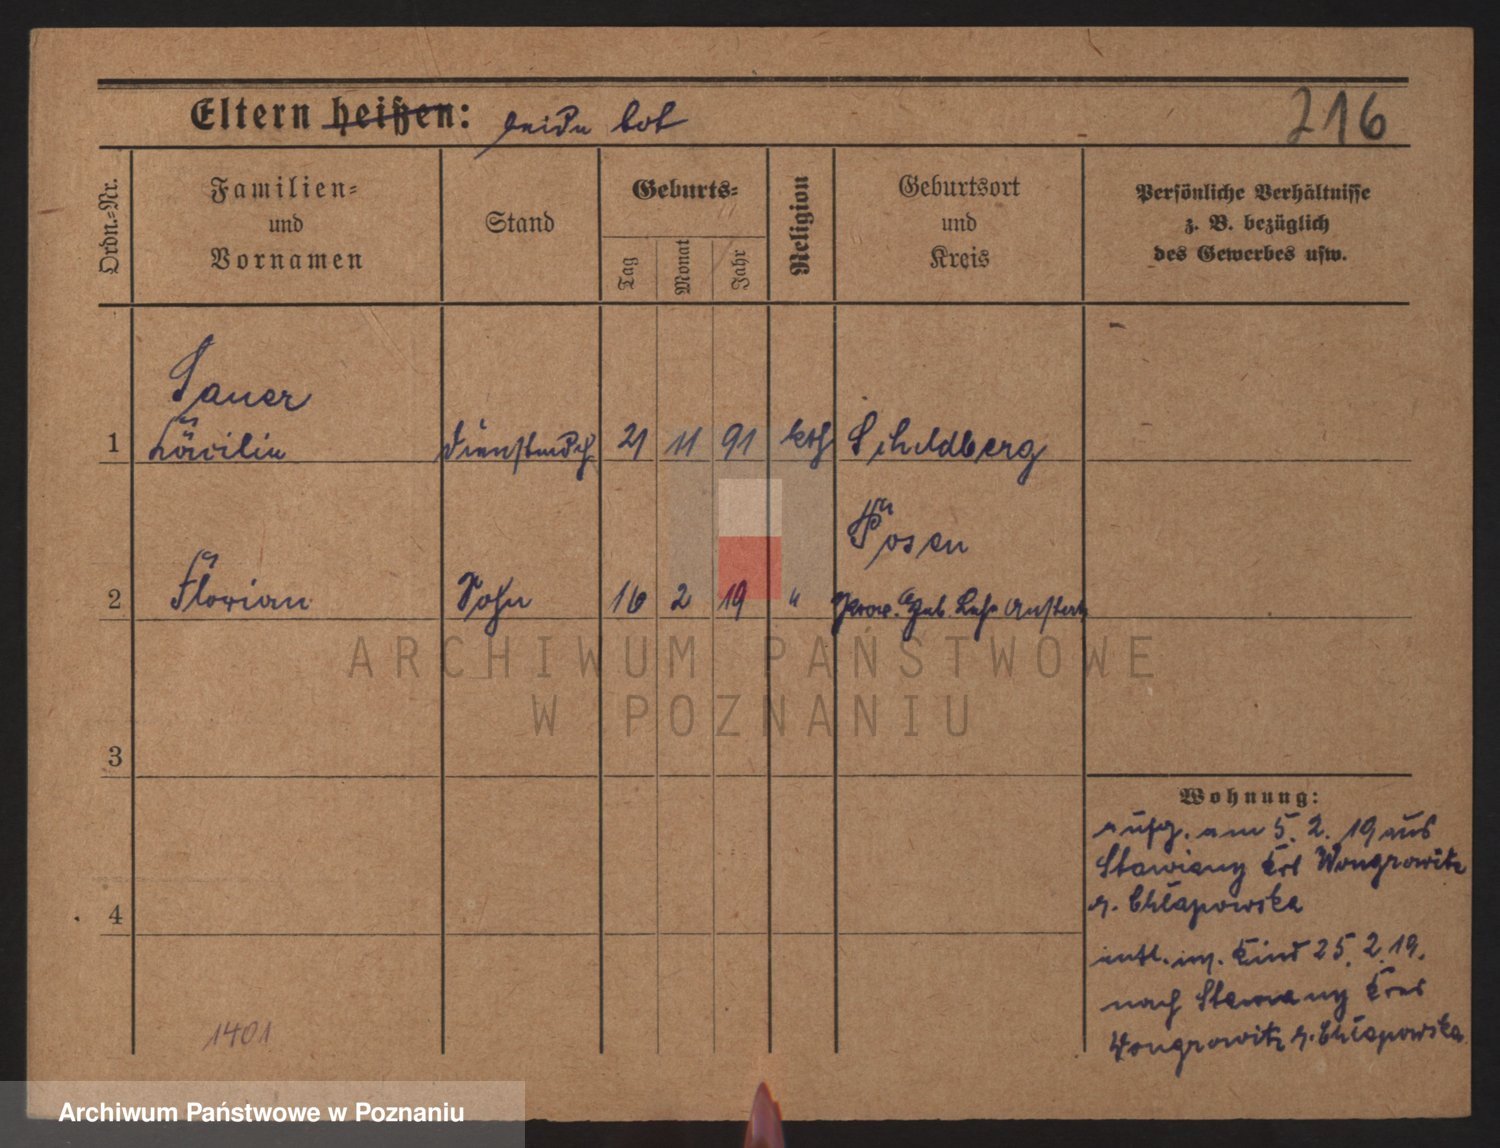 Eltern heißen: beide tot
216
Ordn.-Nr.
Familien-
und
Vornamen
Stand
Geburts-
Tag
Monat
Jahr
Religion
Geburtsort
und
Kreis
Persönliche Verhältnisse
z. B. bezüglich
des Gewerbes usw.
Sauer
1 Cäcilie Dienstmdch 21 11 91 kth Schildberg
Posen
2 Florian Sohn 16 2 19 " Prov. Heb. Lehr Anstalt
3
4
Wohnung:
aufg. am 5. 2. 19 aus
Stawiany Krs Wongrowitz
z. Chlapowska
entl. m. Kind 25. 2. 19.
nach Stawiany Kreis
Wongrowitz z. Chlapowska
1401
ARCHIWUM PAŃSTWOWE
W POZNANIU
Archiwum Państwowe w Poznaniu